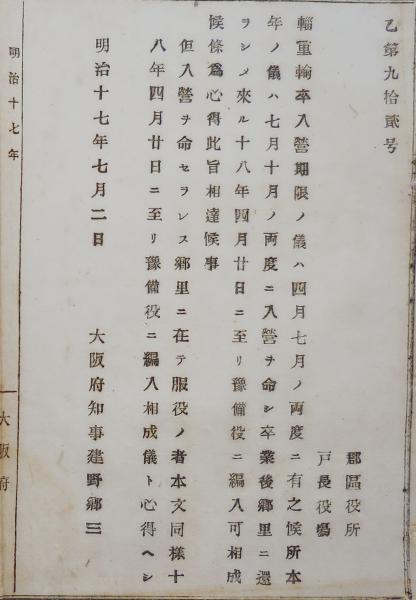 乙第九拾貳号
郡區役所
戸長役塲
輜重輸卒入營期限ノ儀ハ四月七月ノ両度ニ有之候所本
年ノ儀ハ七月十月ノ両度ニ入營ヲ命シ卒業後郷里ニ還
ヲシメ來ル十八年四月廿日ニ至リ豫備役ニ編入可相成
候條爲心得此旨相達候事
但入營ヲ命セラレス郷里ニ在テ服役ノ者本文同樣十
八年四月廿日ニ至リ豫備役ニ編入相成儀ト心得ヘシ
明治十七年七月二日
大阪府知事建野郷三
明治十七年
大阪府